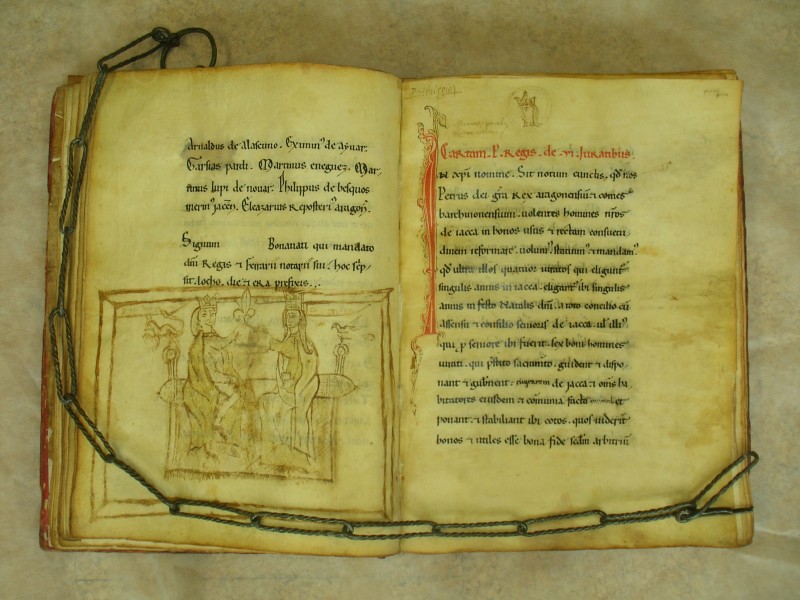 Arnaldus de Alascuno. Eximinꝰ de aȝuar.
Garsias pardi. Martinus eneguez. Mar
tinus lupi de nouar. Philipus de besquos
merinꝰ jaccen̄. Eleazarius Reposterꝰ aragon̄.
Signum Bonanati qui mandato
dn̄i Regis ⁊ ferrarii notarii sui hoc sc̄p
sit. locho. die ⁊ era prefixis.
Cartam. P. Regis. de. vi. Juratibus.
xp̄i nomine. Sit notum cunctis. qd̄ nos
Petrus dei gr̄a Rex aragonensiū ⁊ comes
barchinonensium. uolentes homines nr̄os
de iacca in bonos usus ⁊ rectam consuetu
dinem reformare. uolumꝰ statuimꝰ ⁊ mandamꝰ
qd̄ ultra illos quatuor iuratos qui eligunt᷑
singulis annis in iacca. eligant᷑ ibi singulis
annis in festo Natalis dn̄i. a toto concilio cū
assensu ⁊ consilio senioris de iacca
qui ꝓ seniore ibi fuerit. sex boni homines
iurati. qui p̄stito sac̄ramēto. guident ⁊ dispo
nant ⁊ gub̄nent de jacca ⁊ om̄s ha
bitatores eiusdem ⁊ com̄unia facta et
ponant. ⁊ stabiliant ibi cotos. quos uiderīt
bonos ⁊ utiles esse bona fide secdm̄ arbitriū